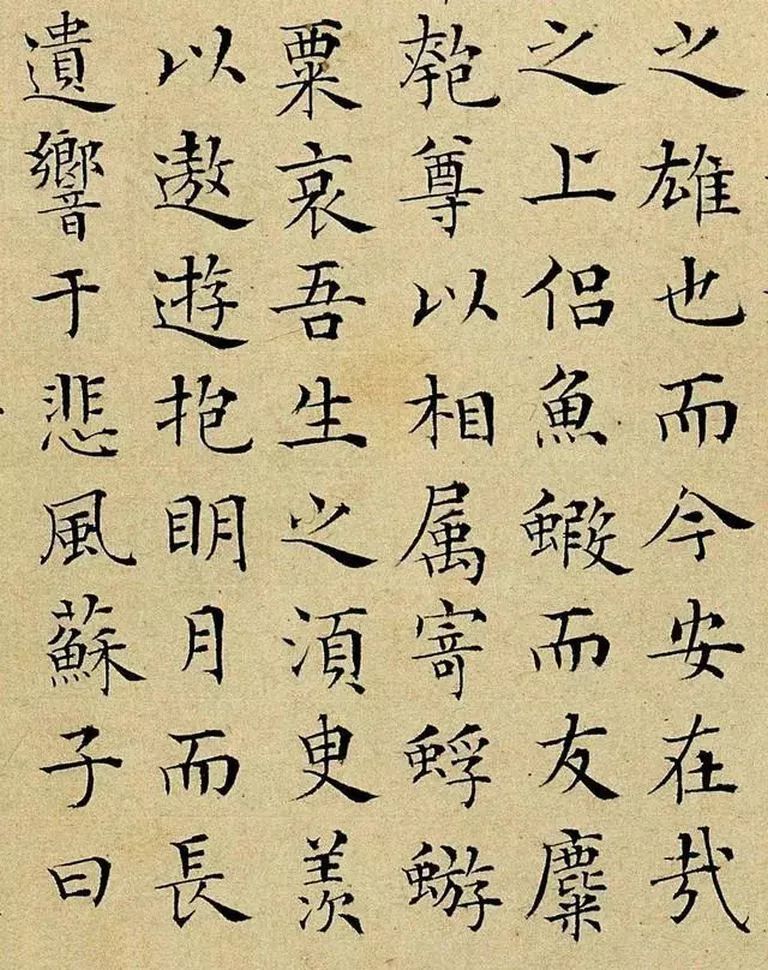 之雄也而今安在哉
之上侣魚蝦而友麋
匏尊以相属寄蜉蝣
粟哀吾生之湏臾羨
以遨遊抱眀月而長
遺響于悲風蘇子曰